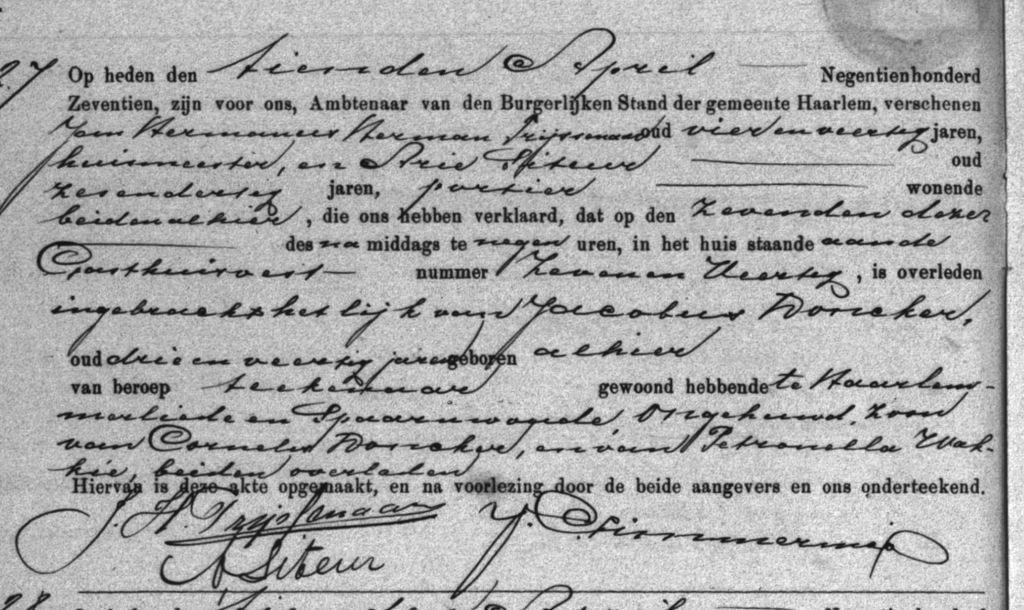 Op heden den tienden April Negentienhonderd
Zeventien, zijn voor ons, Ambtenaar van den Burgerlijken Stand der gemeente Haarlem, verschenen
Jan Hermanus Herman oud vier en veertig jaren,
huismeester, en Arie Siteur oud
zesendertig jaren, portier wonende
beiden alhier, die ons hebben verklaard, dat op den zevenden dezer
des na middags te negen uren, in het huis staande aan de
Gasthuisvest nummer Zeven en Veertig, is overleden
ingebracht het lijk van Jacobus Doncker,
oud drie en veertig jaren geboren alhier
van beroep teekenaar gewoond hebbende te Haarlem-
merliede en Spaarnwoude, Ongehuwd, zoon
van Cornelis Doncker, en van Petronella Wak-
kie, beiden overleden
Hiervan is deze akte opgemaakt, en na voorlezing door de beide aangevers en ons onderteekend.
J. H.
A Siteur